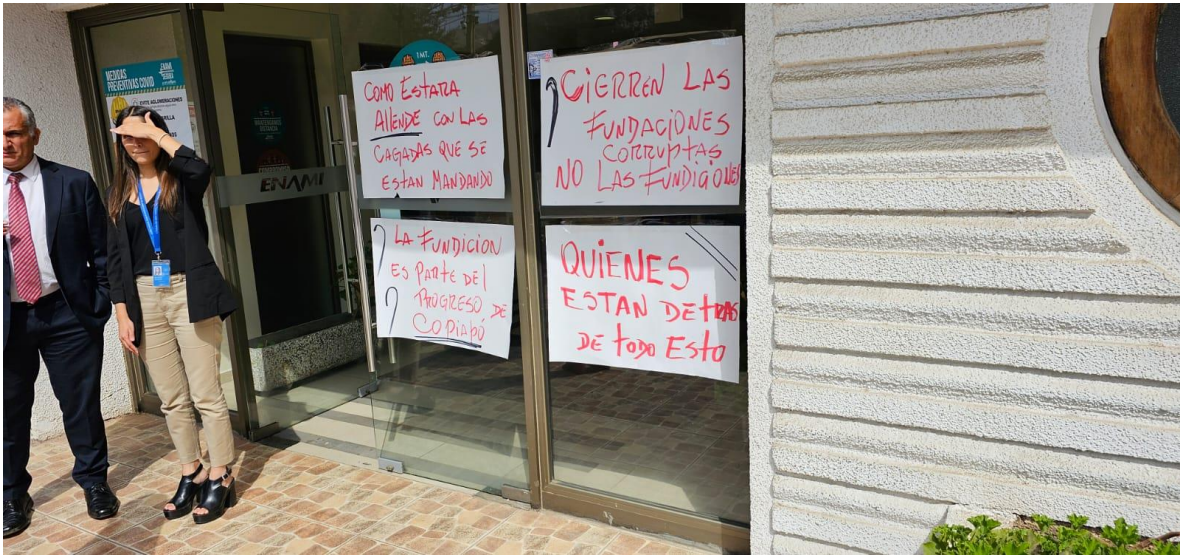 MEDIDAS
PREVENTIVAS COVID
EVITE AGLOMERACIONES
1 MT.
ENAMI
COMO ESTARA
ALLENDE CON LAS
CAGADAS QUE SE
ESTAN MANDANDO
CIERREN LAS
FUNDACIONES
CORRUPTAS
NO LAS FUNDICIONES
LA FUNDICION
ES PARTE DEL
PROGRESO DE
COPIAPÓ
QUIENES
ESTAN DETRAS
DE TODO ESTO